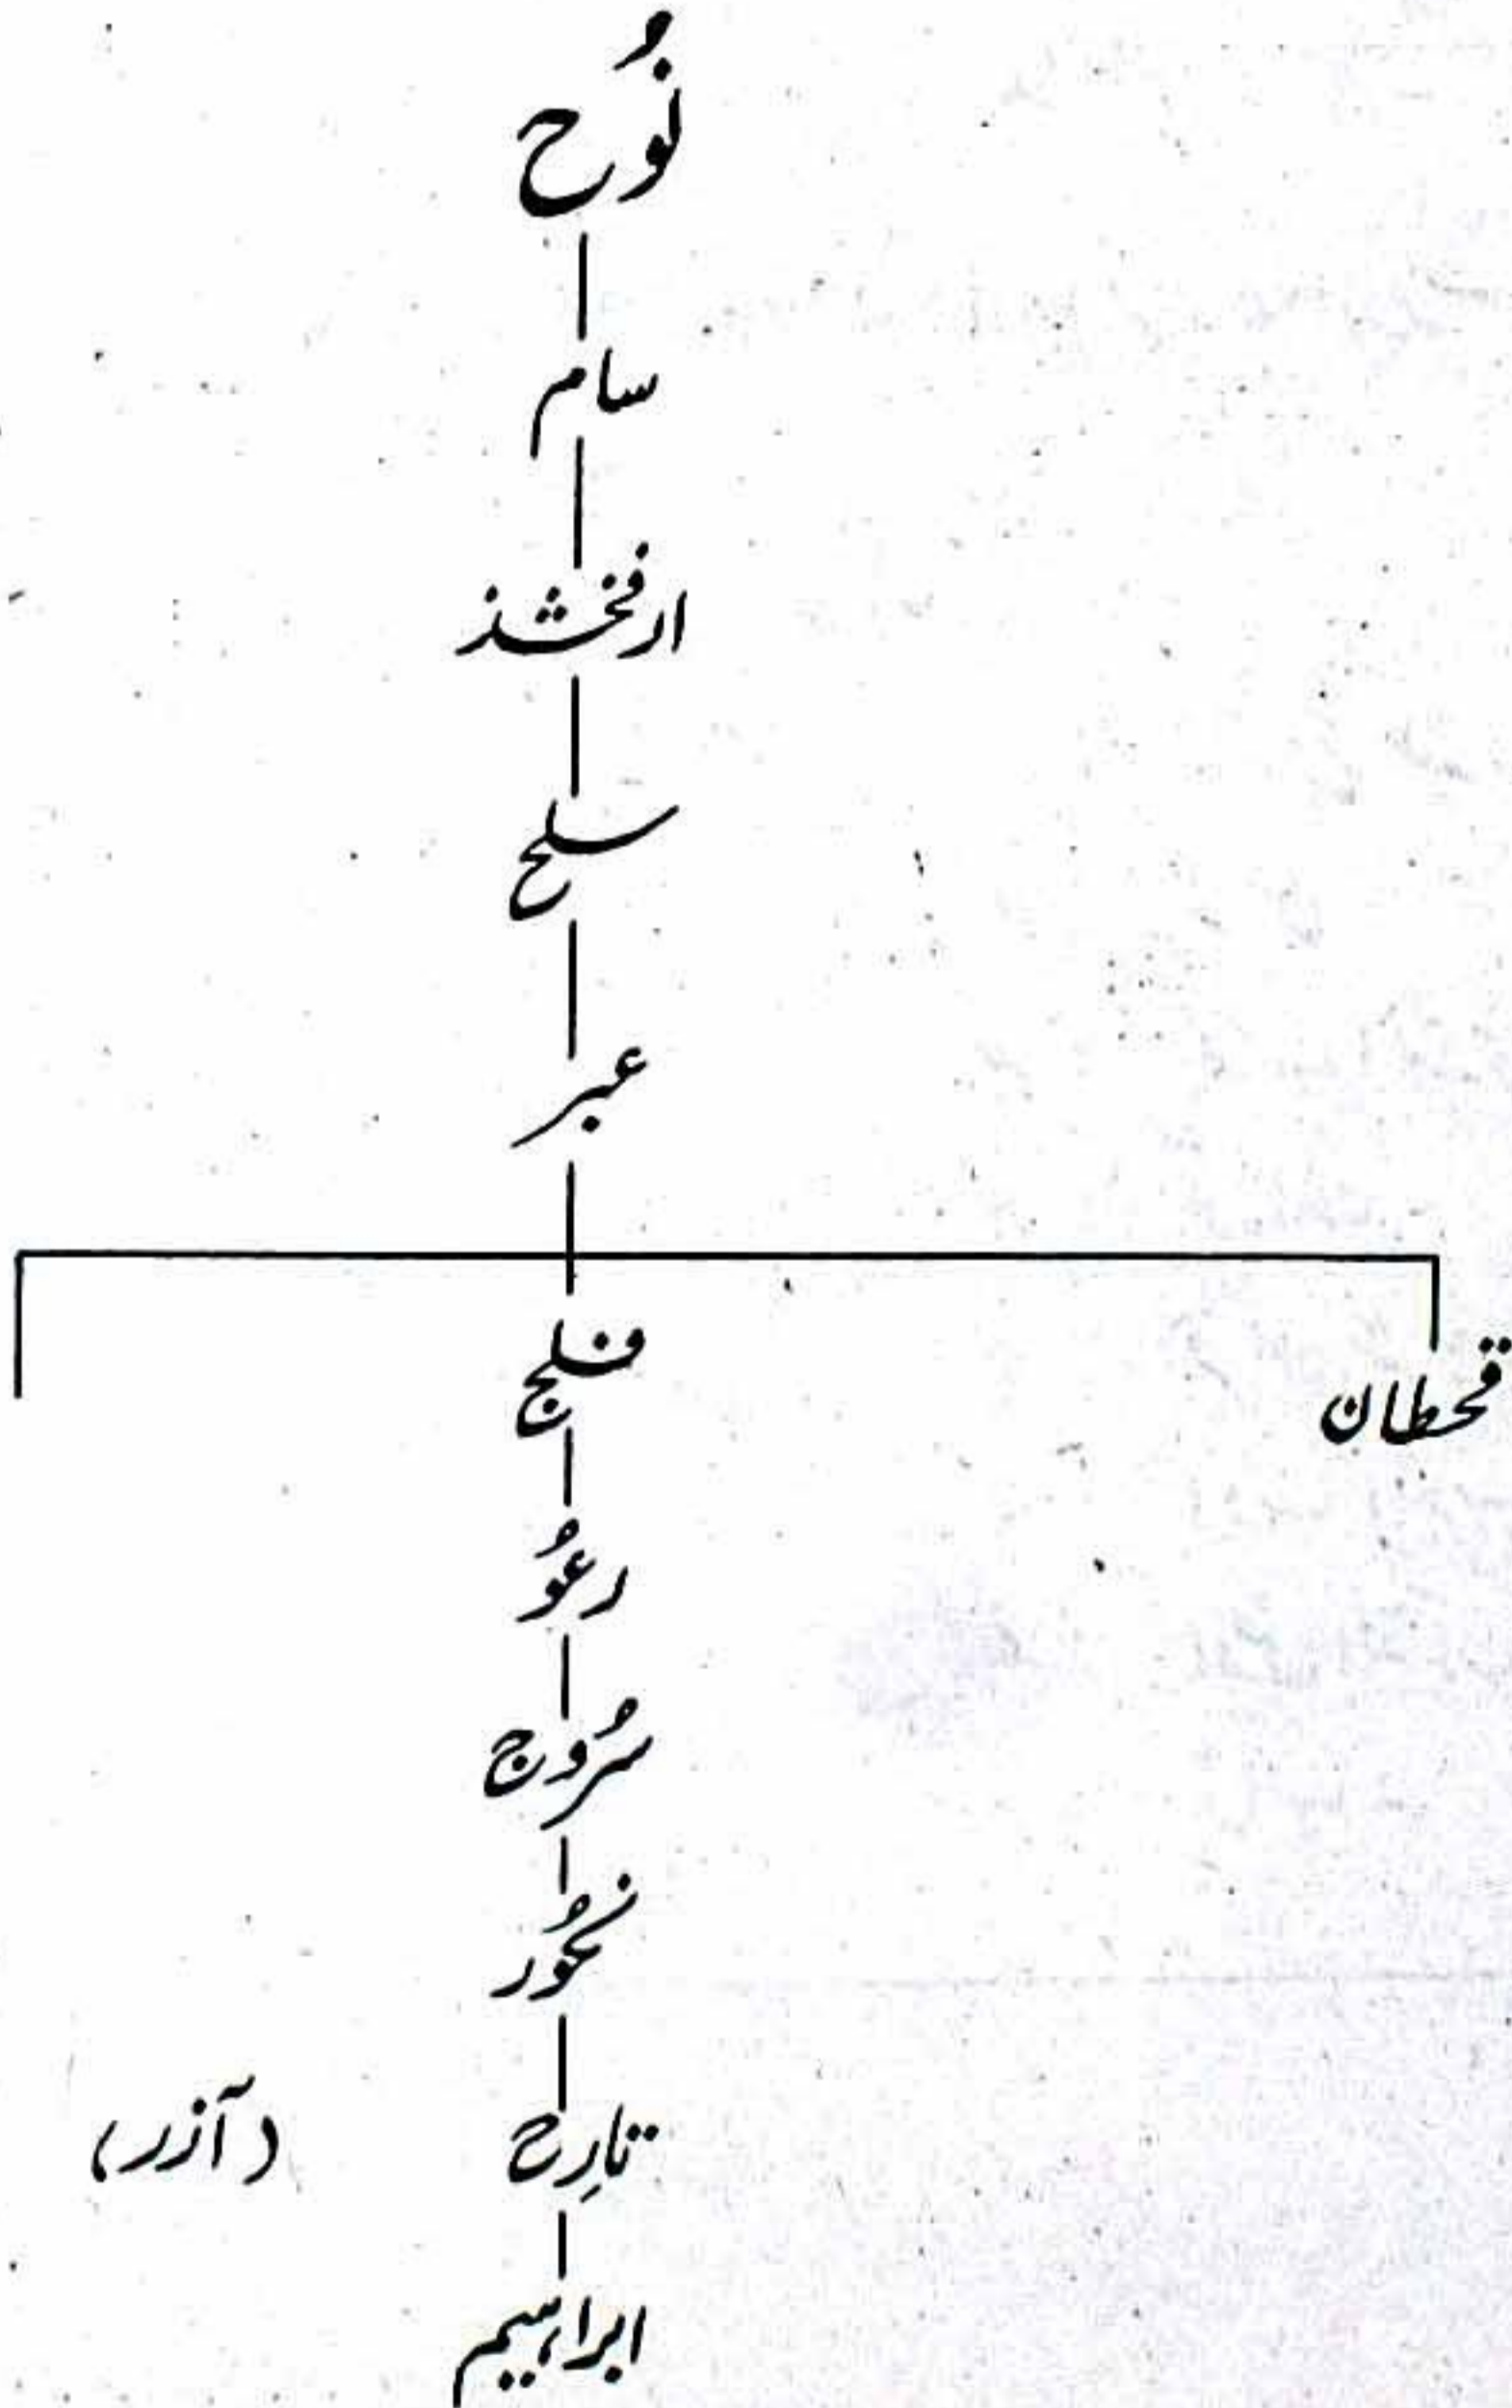 نُوح
سام
ارفخشذ
سلح
عبر
قحطان
فلج
رعُو
سُروج
نحُور
تارِح
(آزر)
ابراہیم